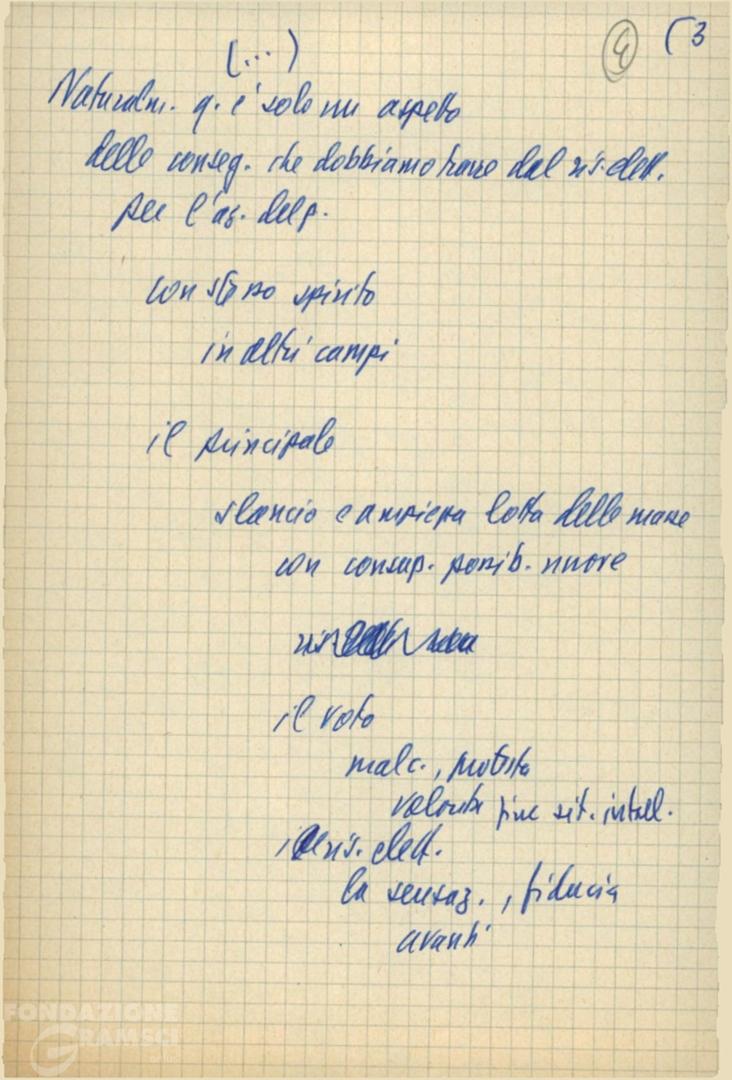 (...)
4 (3
Naturalm. q. è solo un aspetto
delle conseg. che dobbiamo trarre dal ris. elett.
per l'az. del p.
con stesso spirito
in altri campi
il principale
slancio e ampiezza lotta delle masse
con consap. possib. nuove
ris
il voto
malc., protesta
volontà fine sit. intoll.
il ris. elett.
la sensaz., fiducia
avanti
FONDAZIONE
GRAMSCI